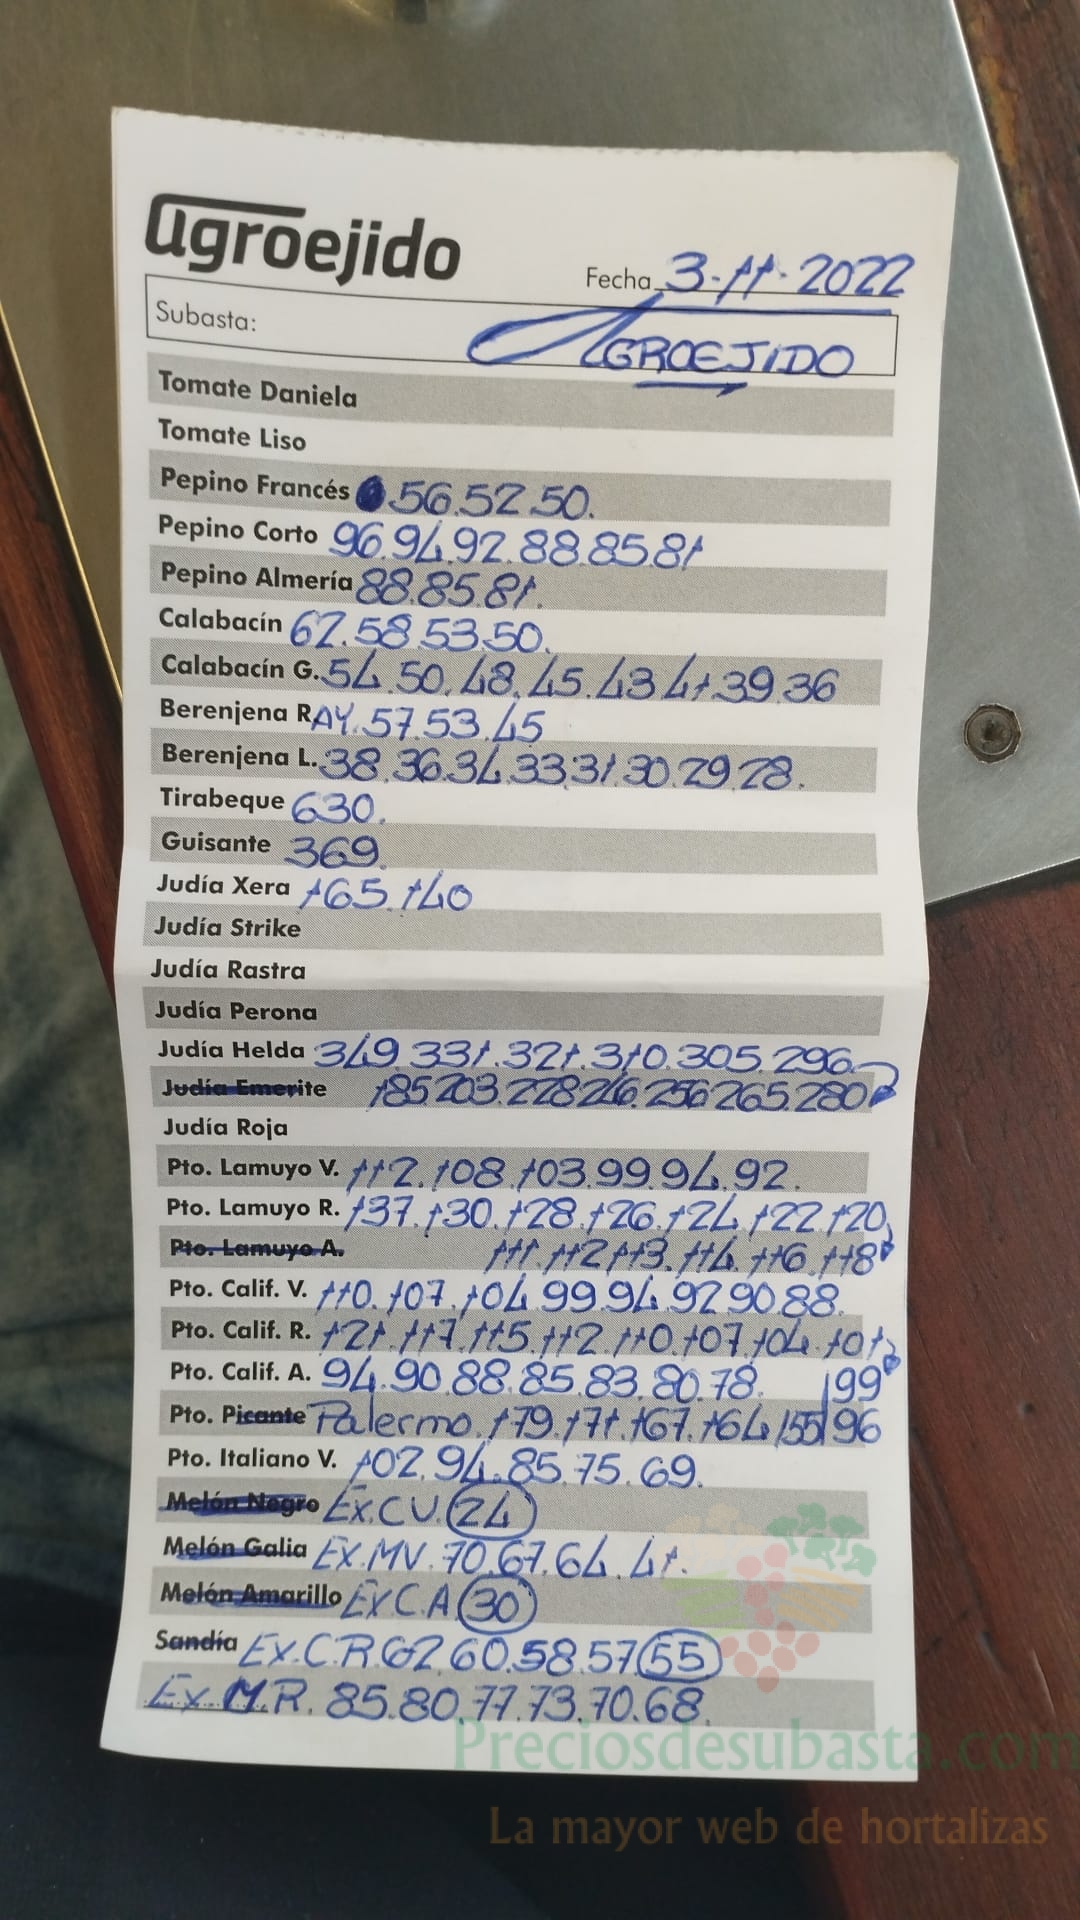 agroejido
Fecha 3-11-2022
Subasta: AGROEJIDO
Tomate Daniela
Tomate Liso
Pepino Francés 56.52.50.
Pepino Corto 96.94.92.88.85.81
Pepino Almería 88.85.81.
Calabacín 62.58.53.50.
Calabacín G. 54.50.48.45.43.41.39.36
Berenjena RAY.57.53.45
Berenjena L. 38.36.34.33.31.30.29.28.
Tirabeque 630.
Guisante 369.
Judía Xera 165.140
Judía Strike
Judía Rastra
Judía Perona
Judía Helda 349.331.321.310.305.296
Judía Emerite 185.203.228.246.256.265.280
Judía Roja
Pto. Lamuyo V. 112.108.103.99.94.92.
Pto. Lamuyo R. 137.130.128.126.124.122.120
Pto. Lamuyo A. 111.112.113.114.116.118
Pto. Calif. V. 110.107.104.99.94.92.90.88.
Pto. Calif. R. 121.117.115.112.110.107.104.101
Pto. Calif. A. 94.90.88.85.83.80.78. 99
Pto. Picante Palermo.179.171.167.164.155 96
Pto. Italiano V. 102.94.85.75.69.
Melón Negro Ex.CV.24
Melón Galia EX.MV.70.67.64.41.
Melón Amarillo Ex C.A 30
Sandía Ex.C.R.62.60.58.57 55
Ex.M.R. 85.80.77.73.70.68.
Preciosdesubasta.com
La mayor web de hortalizas